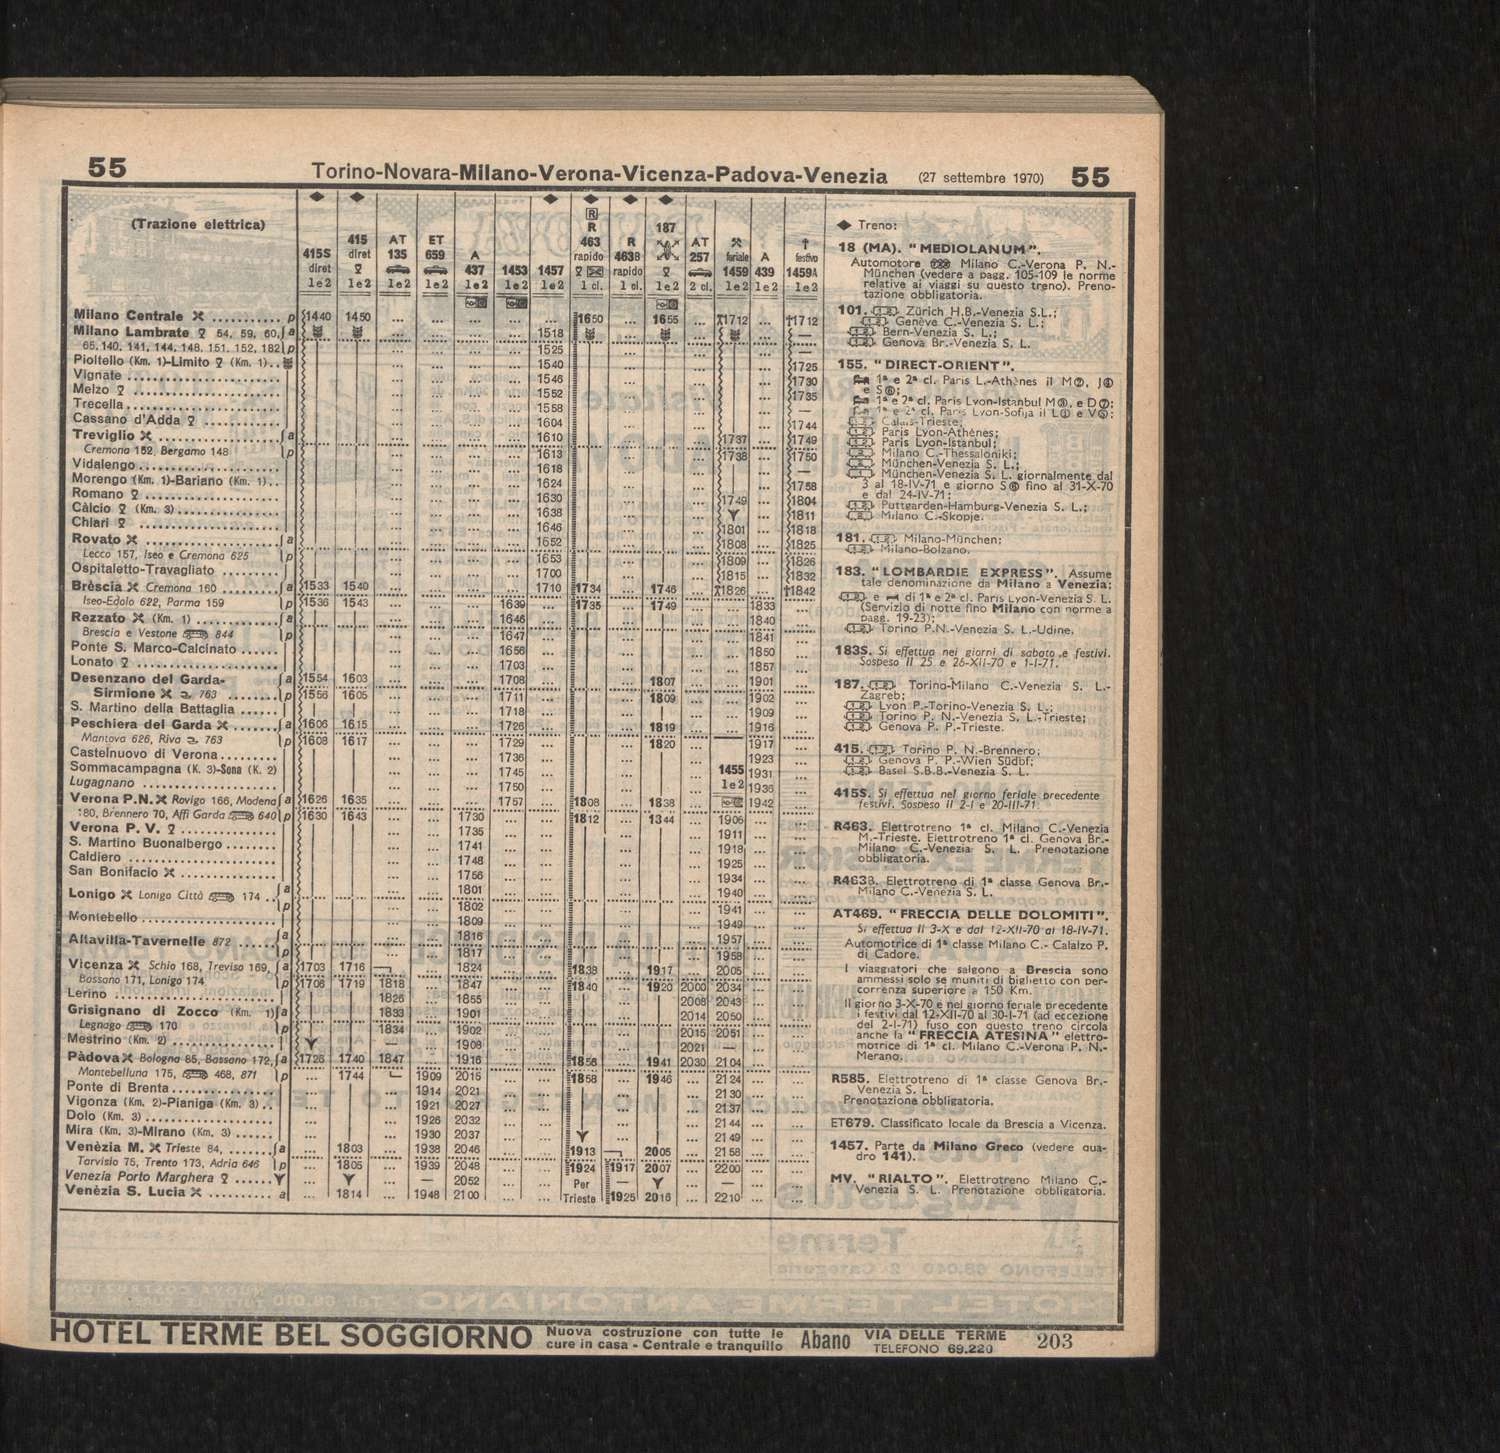 55 Torino-Novara-Milano-Verona-Vicenza-Padova-Venezia (27 settembre 1970) 55
(Trazione elettrica)
415S diret 1e2
415 diret 1e2
AT 135
ET 659
A 437 1e2
1453 1e2
1457 1e2
R R 463 rapido 1 cl.
R 463B rapido 1 cl.
187 1e2
AT 257 2 cl.
feriale 1459 1e2
A 439 1e2
festivo 1459A 1e2
Milano Centrale ........... p 1440 1450 ... ... ... ... 1650 ... 1655 ... 1712 ... 1712
Milano Lambrate 54, 59, 60, a 1518
65, 140, 141, 144, 148, 151, 152, 182 p 1525
Pioltello (Km. 1)-Limito (Km. 1).. 1540 1725
Vignate ...................... 1546 1730
Melzo ...................... 1552 1735
Trecella ...................... 1558 —
Cassano d'Adda ............ 1604 1744
Treviglio .................. a 1610 1737 1749
Cremona 152, Bergamo 148 p 1613 1738 1750
Vidalengo .................... 1618 —
Morengo (Km. 1)-Bariano (Km. 1).. 1624 1758
Romano .................... 1630 1749 1804
Càlcio (Km. 3) ............... 1638 1811
Chiari .................... 1646 1801 1818
Rovato .................... a 1652 1808 1825
Lecco 157, Iseo e Cremona 625 p 1653 1809 1826
Ospitaletto-Travagliato ........ 1700 1815 1832
Brèscia Cremona 160 ........ a 1533 1540 1710 1734 1746 1826 1842
Iseo-Edolo 622, Parma 159 p 1536 1543 1639 1735 1749 1833
Rezzato (Km. 1) ............ a 1646 1840
Brescia e Vestone 844 p 1647 1841
Ponte S. Marco-Calcinato ...... 1656 1850
Lonato .................... 1703 1857
Desenzano del Garda- a 1554 1603 1708 1807 1901
Sirmione 763 ....... p 1556 1605 1711 1809 1902
S. Martino della Battaglia ...... 1718 1909
Peschiera del Garda ....... a 1606 1615 1726 1819 1916
Mantova 626, Riva 763 p 1608 1617 1729 1820 1917
Castelnuovo di Verona ......... 1736 1923
Sommacampagna (K. 3)-Sona (K. 2) 1745 1455 1931
Lugagnano .................... 1750 1e2 1936
Verona P.N. Rovigo 166, Modena a 1626 1635 1757 1808 1838 1942
180, Brennero 70, Affi Garda 640 p 1630 1643 1730 1812 1344 1906
Verona P. V. .............. 1735 1911
S. Martino Buonalbergo ........ 1741 1918
Caldiero ...................... 1748 1925
San Bonifacio ............... 1756 1934
Lonigo Lonigo Città 174 .. a 1801 1940
p 1802 1941
Montebello .................... 1809 1949
Altavilla-Tavernelle 872 ...... a 1816 1957
p 1817 1958
Vicenza Schio 168, Treviso 169, a 1703 1716 1824 1838 1917 2005
Bassano 171, Lonigo 174 p 1706 1719 1818 1847 1840 1920 2000 2034
Lerino ....................... 1826 1855 2008 2043
Grisignano di Zocco (Km. 1) a 1833 1901 2014 2050
Legnago 170 p 1834 1902 2015 2051
Mestrino (Km. 2) .............. 1908 2021 —
Pàdova Bologna 85, Bassano 172, a 1726 1740 1847 1916 1856 1941 2030 2104
Montebelluna 175, 468, 871 p ... 1744 1909 2015 1858 1946 2124
Ponte di Brenta ............... 1914 2021 2130
Vigonza (Km. 2)-Pianiga (Km. 3) .. 1921 2027 2137
Dolo (Km. 3) .................. 1926 2032 2144
Mira (Km. 3)-Mirano (Km. 3) ..... 1930 2037 2149
Venèzia M. Trieste 84, ....... a 1803 1938 2046 1913 2005 2158
Tarvisio 75, Trento 173, Adria 646 p 1805 1939 2048 1924 1917 2007 2200
Venezia Porto Marghera ...... — 2052 Per — —
Venèzia S. Lucia ........... a 1814 1948 2100 Trieste 1925 2016 2210
Treno:
18 (MA). "MEDIOLANUM".
Automotore Milano C.-Verona P. N.-
München (vedere a pagg. 105-109 le norme
relative ai viaggi su questo treno). Preno-
tazione obbligatoria.
101. Zürich H.B.-Venezia S.L.;
Genève C.-Venezia S. L.;
Bern-Venezia S. L.;
Genova Br.-Venezia S. L.
155. "DIRECT-ORIENT".
1ª e 2ª cl. Paris L.-Athènes il M②, J④
e S⑥;
1ª e 2ª cl. Paris Lyon-Istanbul M⑤, e D⑦;
1ª e 2ª cl. Paris Lyon-Sofija il L① e V⑤;
Calais-Trieste;
Paris Lyon-Athènes;
Paris Lyon-Istanbul;
Milano C.-Thessaloniki;
München-Venezia S. L.;
München-Venezia S. L. giornalmente dal
3 al 18-IV-71 e giorno S⑥ fino al 31-X-70
e dal 24-IV-71;
Puttgarden-Hamburg-Venezia S. L.;
Milano C.-Skopje.
181. Milano-München;
Milano-Bolzano.
183. "LOMBARDIE EXPRESS". Assume
tale denominazione da Milano a Venezia;
e di 1ª e 2ª cl. Paris Lyon-Venezia S. L.
(Servizio di notte fino Milano con norme a
pagg. 19-23);
Torino P.N.-Venezia S. L.-Udine.
183S. Si effettua nei giorni di sabato e festivi.
Sospeso il 25 e 26-XII-70 e 1-I-71.
187. Torino-Milano C.-Venezia S. L.-
Zagreb;
Lyon P.-Torino-Venezia S. L.;
Torino P. N.-Venezia S. L.-Trieste;
Genova P. P.-Trieste.
415. Torino P. N.-Brennero;
Genova P. P.-Wien Südbf;
Basel S.B.B.-Venezia S. L.
415S. Si effettua nel giorno feriale precedente
festivi. Sospeso il 2-I e 20-III-71.
R463. Elettrotreno 1ª cl. Milano C.-Venezia
M.-Trieste. Elettrotreno 1ª cl. Genova Br.-
Milano C.-Venezia S. L. Prenotazione
obbligatoria.
R463B. Elettrotreno di 1ª classe Genova Br.-
Milano C.-Venezia S. L.
AT469. "FRECCIA DELLE DOLOMITI".
Si effettua il 3-X e dal 12-XII-70 al 18-IV-71.
Automotrice di 1ª classe Milano C.- Calalzo P.
di Cadore.
I viaggiatori che salgono a Brescia sono
ammessi solo se muniti di biglietto con per-
correnza superiore a 150 Km.
Il giorno 3-X-70 e nel giorno feriale precedente
i festivi dal 12-XII-70 al 30-I-71 (ad eccezione
del 2-I-71) fuso con questo treno circola
anche la "FRECCIA ATESINA" elettro-
motrice di 1ª cl. Milano C.-Verona P. N.-
Merano.
R585. Elettrotreno di 1ª classe Genova Br.-
Venezia S. L.
Prenotazione obbligatoria.
ET679. Classificato locale da Brescia a Vicenza.
1457. Parte da Milano Greco (vedere qua-
dro 141).
MV. "RIALTO". Elettrotreno Milano C.-
Venezia S. L. Prenotazione obbligatoria.
HOTEL TERME BEL SOGGIORNO Nuova costruzione con tutte le cure in casa - Centrale e tranquillo Abano VIA DELLE TERME TELEFONO 69.220 203